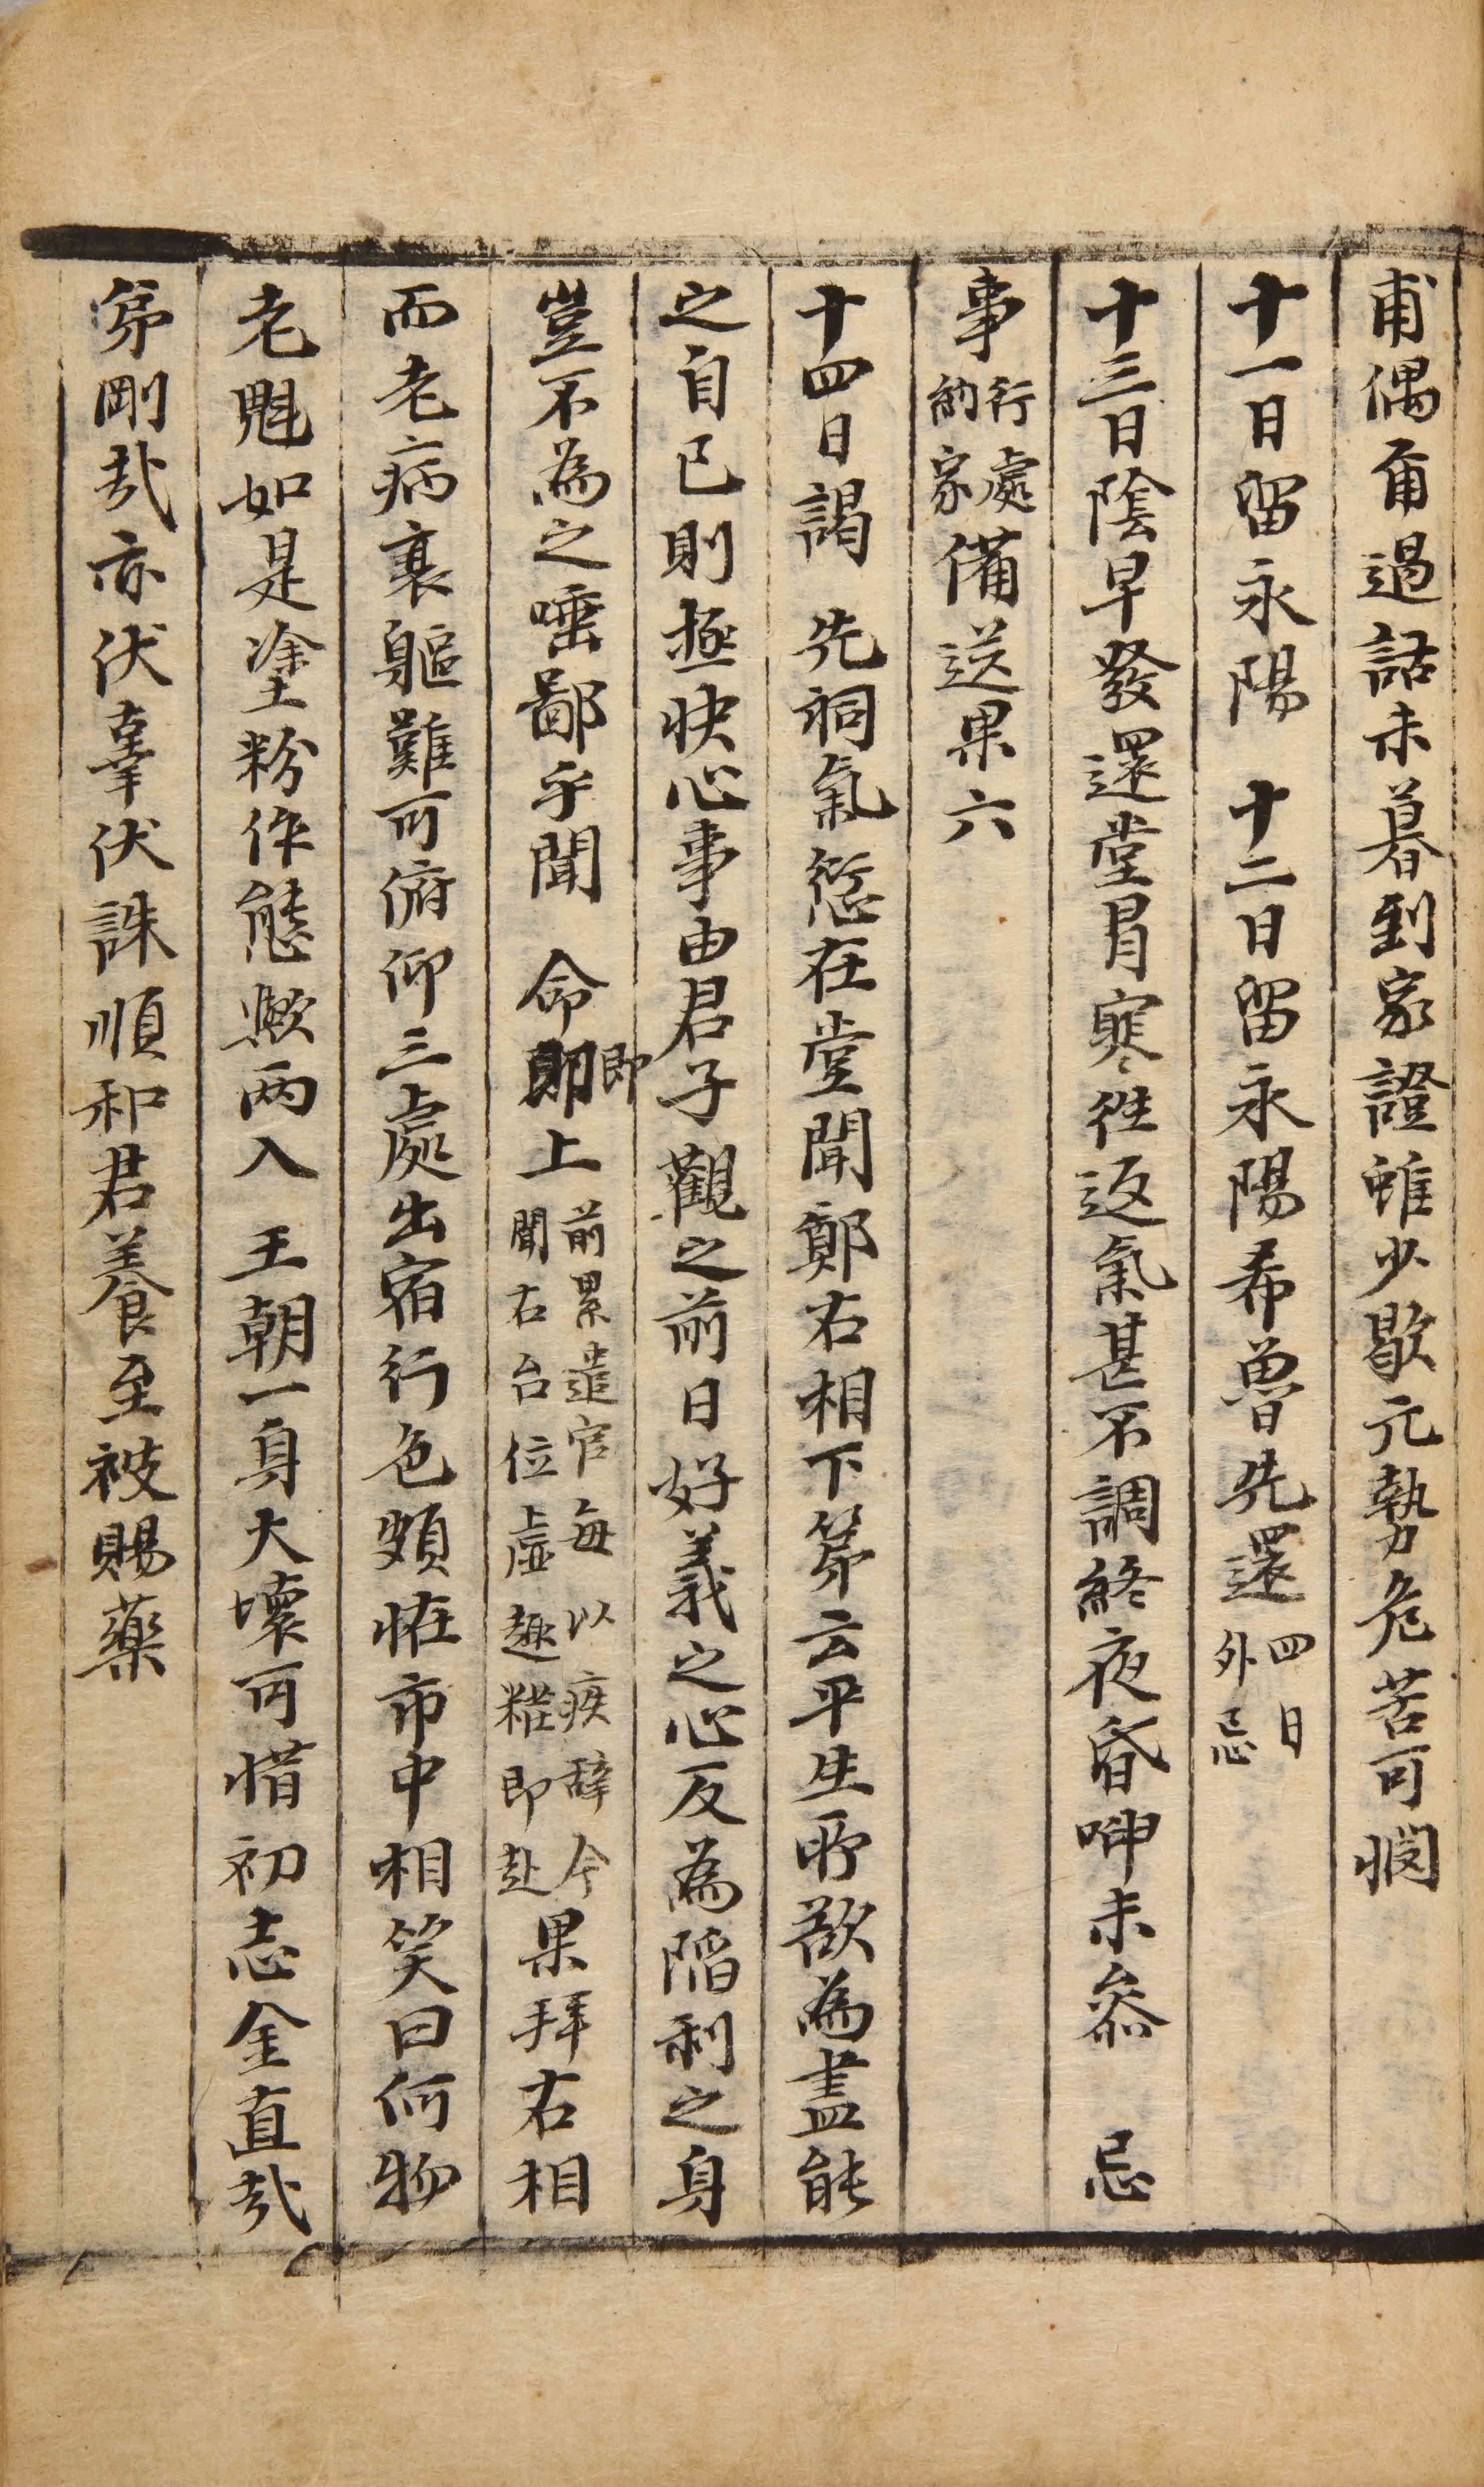 甫偶爾過話未暮到家證雖少歇元勢危苦可憫
十一日留永陽　十二日留永陽希魯先還四日外忌
十三日陰早發還堂冒寒徃返氣甚不調終夜昏呻未參　忌
事行處納家備送果六
十四日謁　先祠氣愆在堂聞鄭右相下第云平生所欲為盡能
之自已則極快心事由君子觀之前日好義之心反為陷利之身
豈不為之唾鄙乎聞　命即上前累遣官每以疾辭今聞右台位虛趣粧即赴果拜右相
即
而老病衰軀難可俯仰三處出宿行色頗恠市中相笑曰何物
老魁如是塗粉作態歟兩入　王朝一身大壞可惜初志金直哉
第剛哉亦伏辜伏誅順和君養至被賜藥